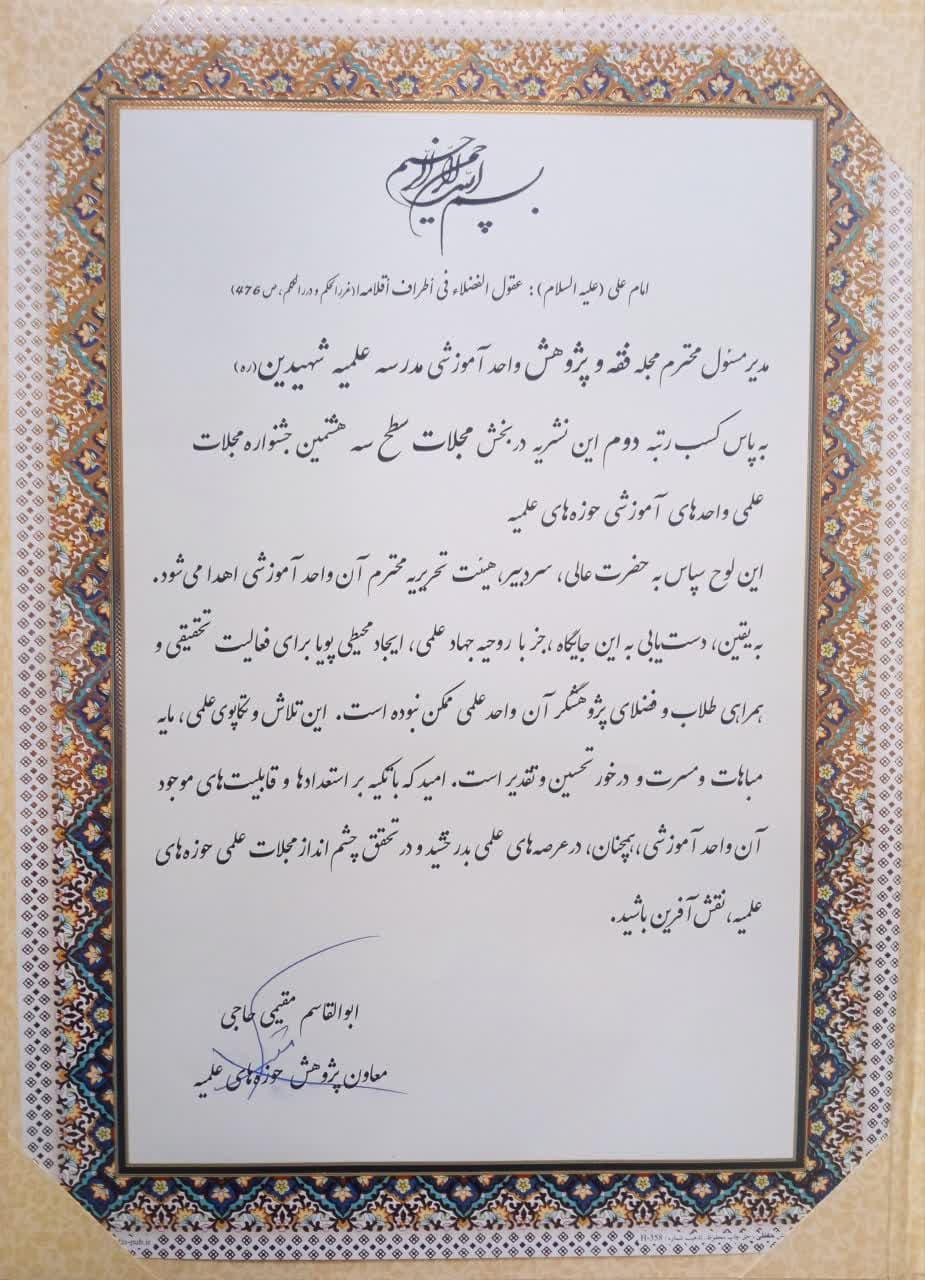 بسم الله الرحمن الرحیم
امام علی (علیه السلام): عقول الفضلاء فی أطراف أقلامها (غررالحکم و دررالحکم، ص 476)
مدیرمسئول محترم مجله فقه و پژوهش واحد آموزشی مدرسه علمیه شهیدین(ره)
به پاس کسب رتبه دوم این نشریه در بخش مجلات سطح سه هشتمین جشنواره مجلات
علمی واحدهای آموزشی حوزه‌های علمیه
این لوح سپاس به حضرت عالی، سردبیر، هیئت تحریریه محترم آن واحد آموزشی اهدا می‌شود.
به یقین، دست‌یابی به این جایگاه، جز با روحیه جهاد علمی، ایجاد محیطی پویا برای فعالیت تحقیقی و
همراهی طلاب و فضلای پژوهشگر آن واحد علمی ممکن نبوده است. این تلاش و تکاپوی علمی، مایه
مباهات و مسرت و درخور تحسین و تقدیر است. امید که با تکیه بر استعدادها و قابلیت‌های موجود
آن واحد آموزشی، همچنان، در عرصه‌های علمی بدرخشید و در تحقق چشم انداز مجلات علمی حوزه‌های
علمیه، نقش آفرین باشید.
ابوالقاسم مقیمی حاجی
معاون پژوهش حوزه‌های علمیه
H-358